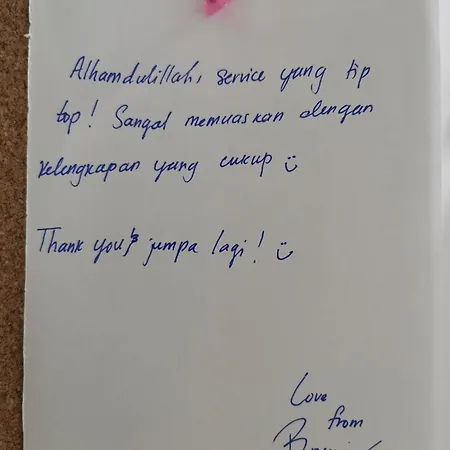 Alhamdulillah, service yang tip
top! Sangat memuaskan dengan
kelengkapan yang cukup ن
Thank you & jumpa lagi! ن
Love
from